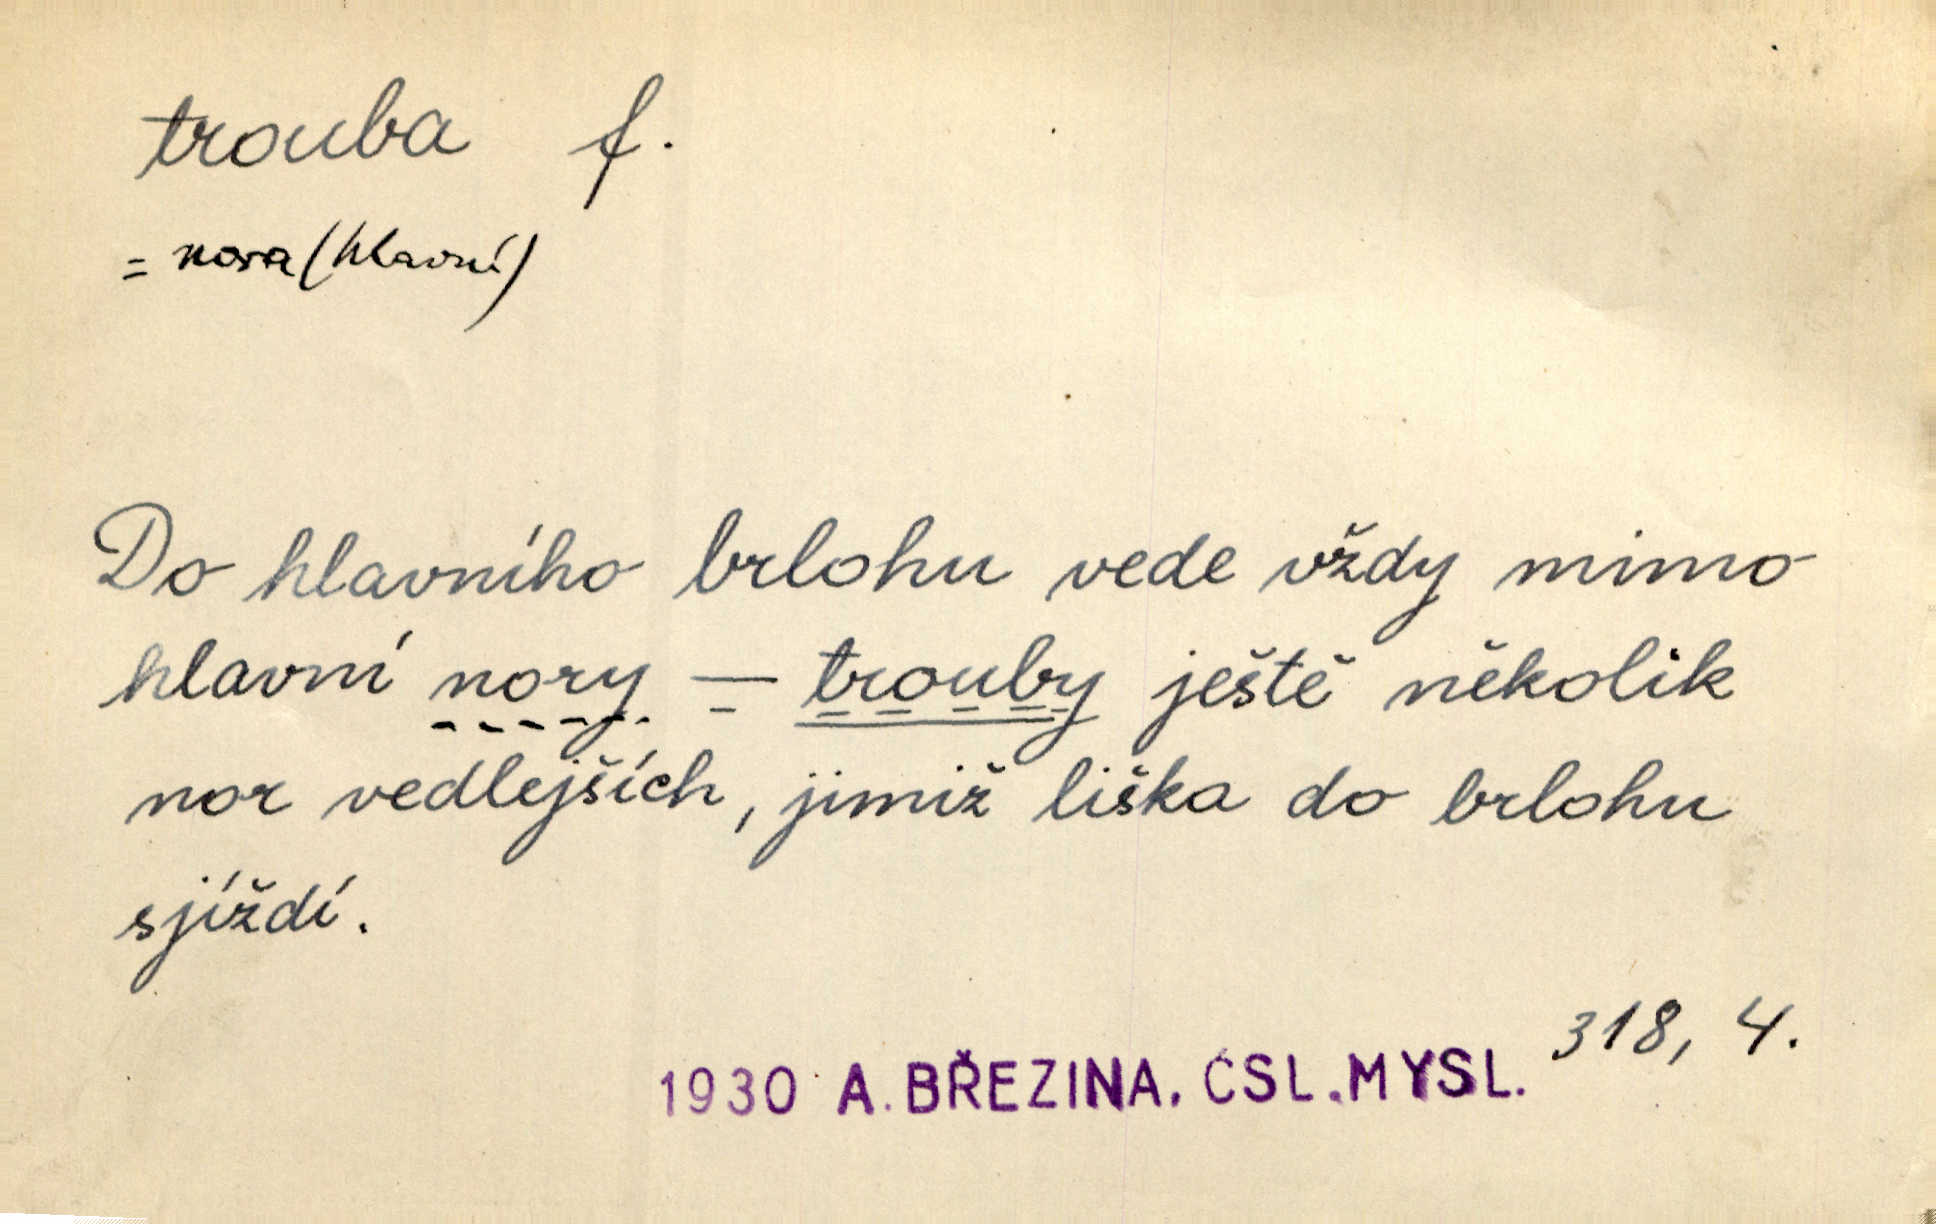 trouba f.
= nora (hlavní)
Do hlavního brlohu vede vždy mimo
hlavní nory — trouby ještě několik
nor vedlejších, jimiž liška do brlohu
sjíždí.
318, 4.
1930 A. BŘEZINA. ČSL. MYSL.